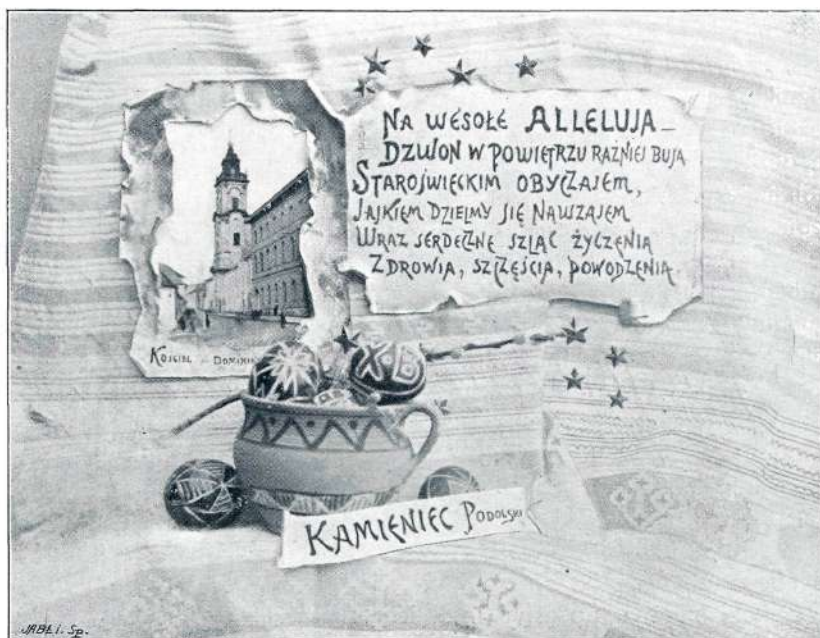 NA WESOŁE ALLELUJA –
DZWON W POWIETRZU RAŹNIEJ BUJA
STAROŚWIECKIM OBYCZAJEM,
JAJKIEM DZIELMY SIĘ NAWZAJEM
WRAZ SERDECZNE SZLĄC ŻYCZENIA
ZDROWIA, SZCZĘŚCIA, POWODZENIA.
KOŚCIOŁ
X·B
KAMIENIEC PODOLSKI
JABŁ i. Sp.